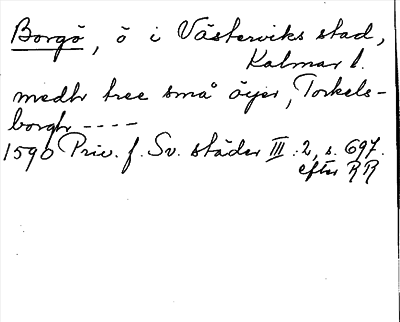 Borgö, ö i Västerviks stad,
Kalmar l.
medhr tree små öyer, Torkels-
borghr ----
1590 Priv. f. Sv. städer III:2, s. 697.
efter RR